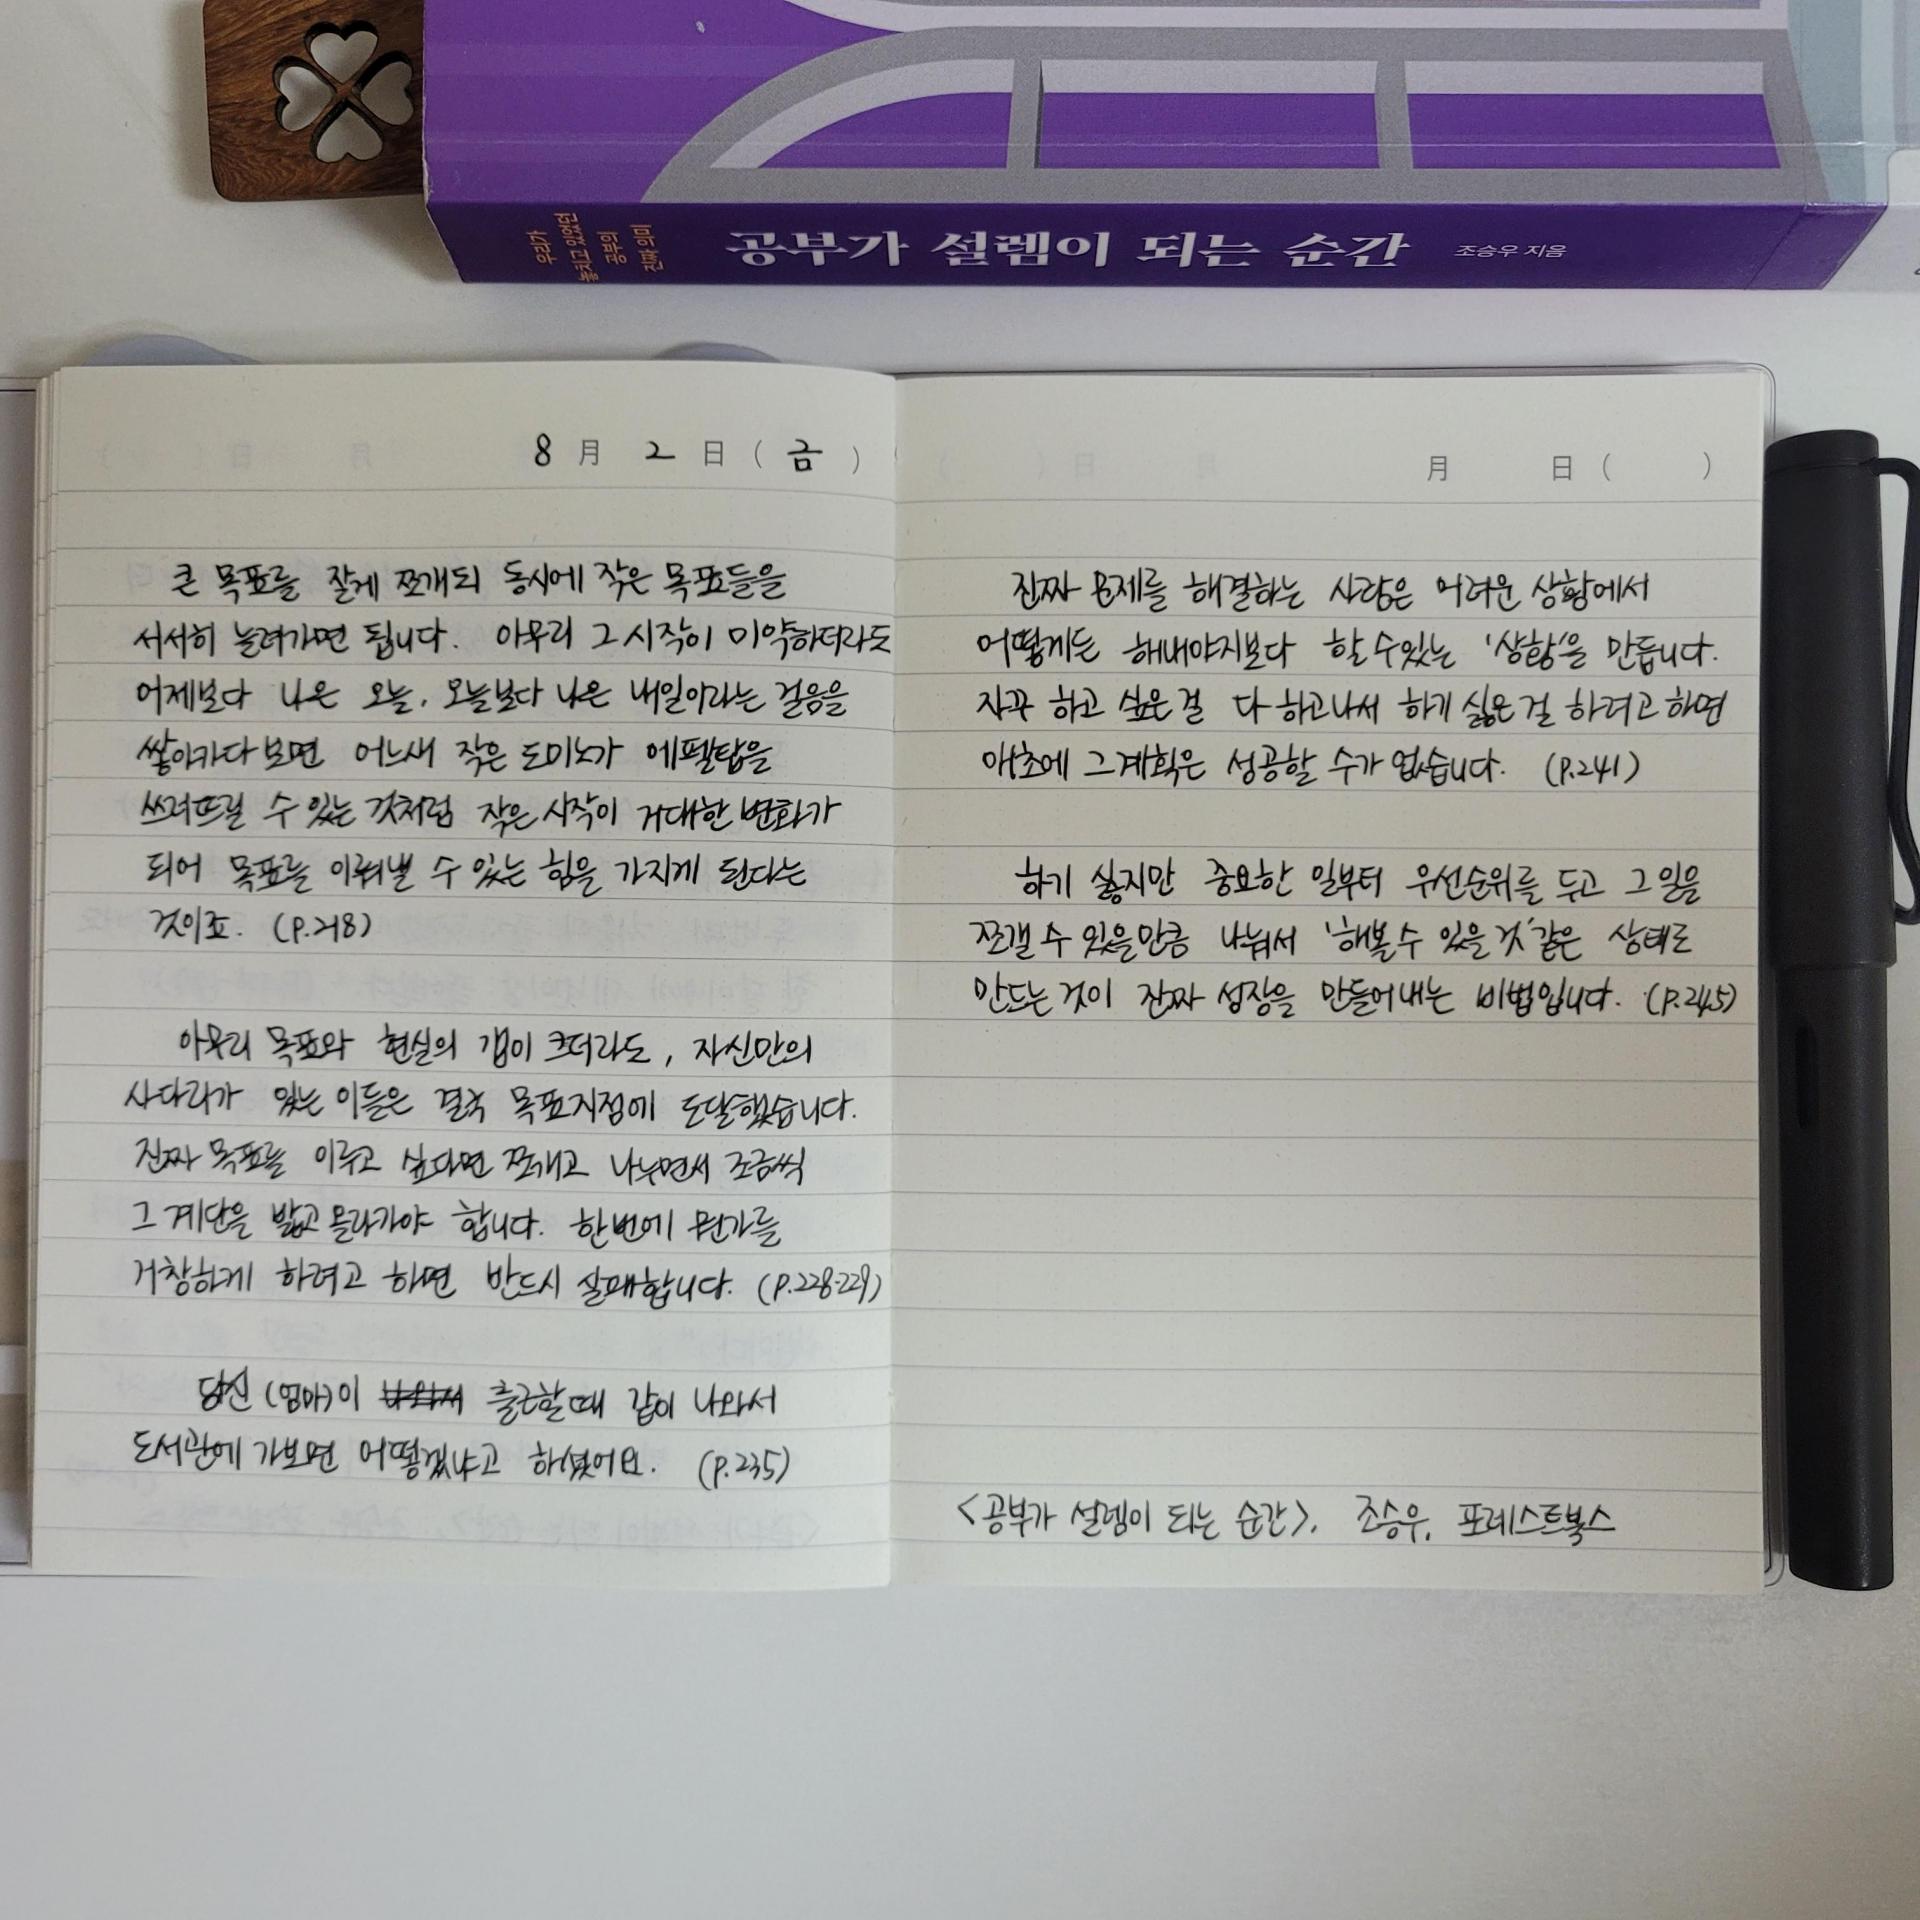 우리가
놓치고 있었던
공부의
진짜 의미
공부가 설렘이 되는 순간
조승우 지음
8月 2日(금)
큰 목표를 잘게 쪼개되 동시에 작은 목표들을
서서히 늘려가면 됩니다. 아무리 그 시작이 미약하더라도
어제보다 나은 오늘, 오늘보다 나은 내일이라는 걸음을
쌓아가다 보면 어느새 작은 도미노가 에펠탑을
쓰러뜨릴 수 있는 것처럼 작은 시작이 거대한 변화가
되어 목표를 이뤄낼 수 있는 힘을 가지게 된다는
것이죠. (P.218)
아무리 목표와 현실의 갭이 크더라도, 자신만의
사다리가 있는 이들은 결국 목표지점에 도달했습니다.
진짜 목표를 이루고 싶다면 쪼개고 나누면서 조금씩
그 계단을 밟고 올라가야 합니다. 한번에 뭔가를
거창하게 하려고 하면 반드시 실패합니다. (P.228-229)
당신(엄마)이 출근할때 같이 나와서
도서관에 가보면 어떻겠냐고 하셨어요. (P.235)
月 日( )
진짜 문제를 해결하는 사람은 어려운 상황에서
어떻게든 해내야지보다 할 수 있는 '상황'을 만듭니다.
자꾸 하고 싶은 걸 다 하고나서 하기 싫은 걸 하려고 하면
애초에 그 계획은 성공할 수가 없습니다. (P.241)
하기 싫지만 중요한 일부터 우선순위를 두고 그 일을
쪼갤 수 있을만큼 나눠서 '해볼 수 있을 것' 같은 상태로
만드는 것이 진짜 성장을 만들어내는 비법입니다. (P.245)
<공부가 설렘이 되는 순간>, 조승우, 포레스트북스